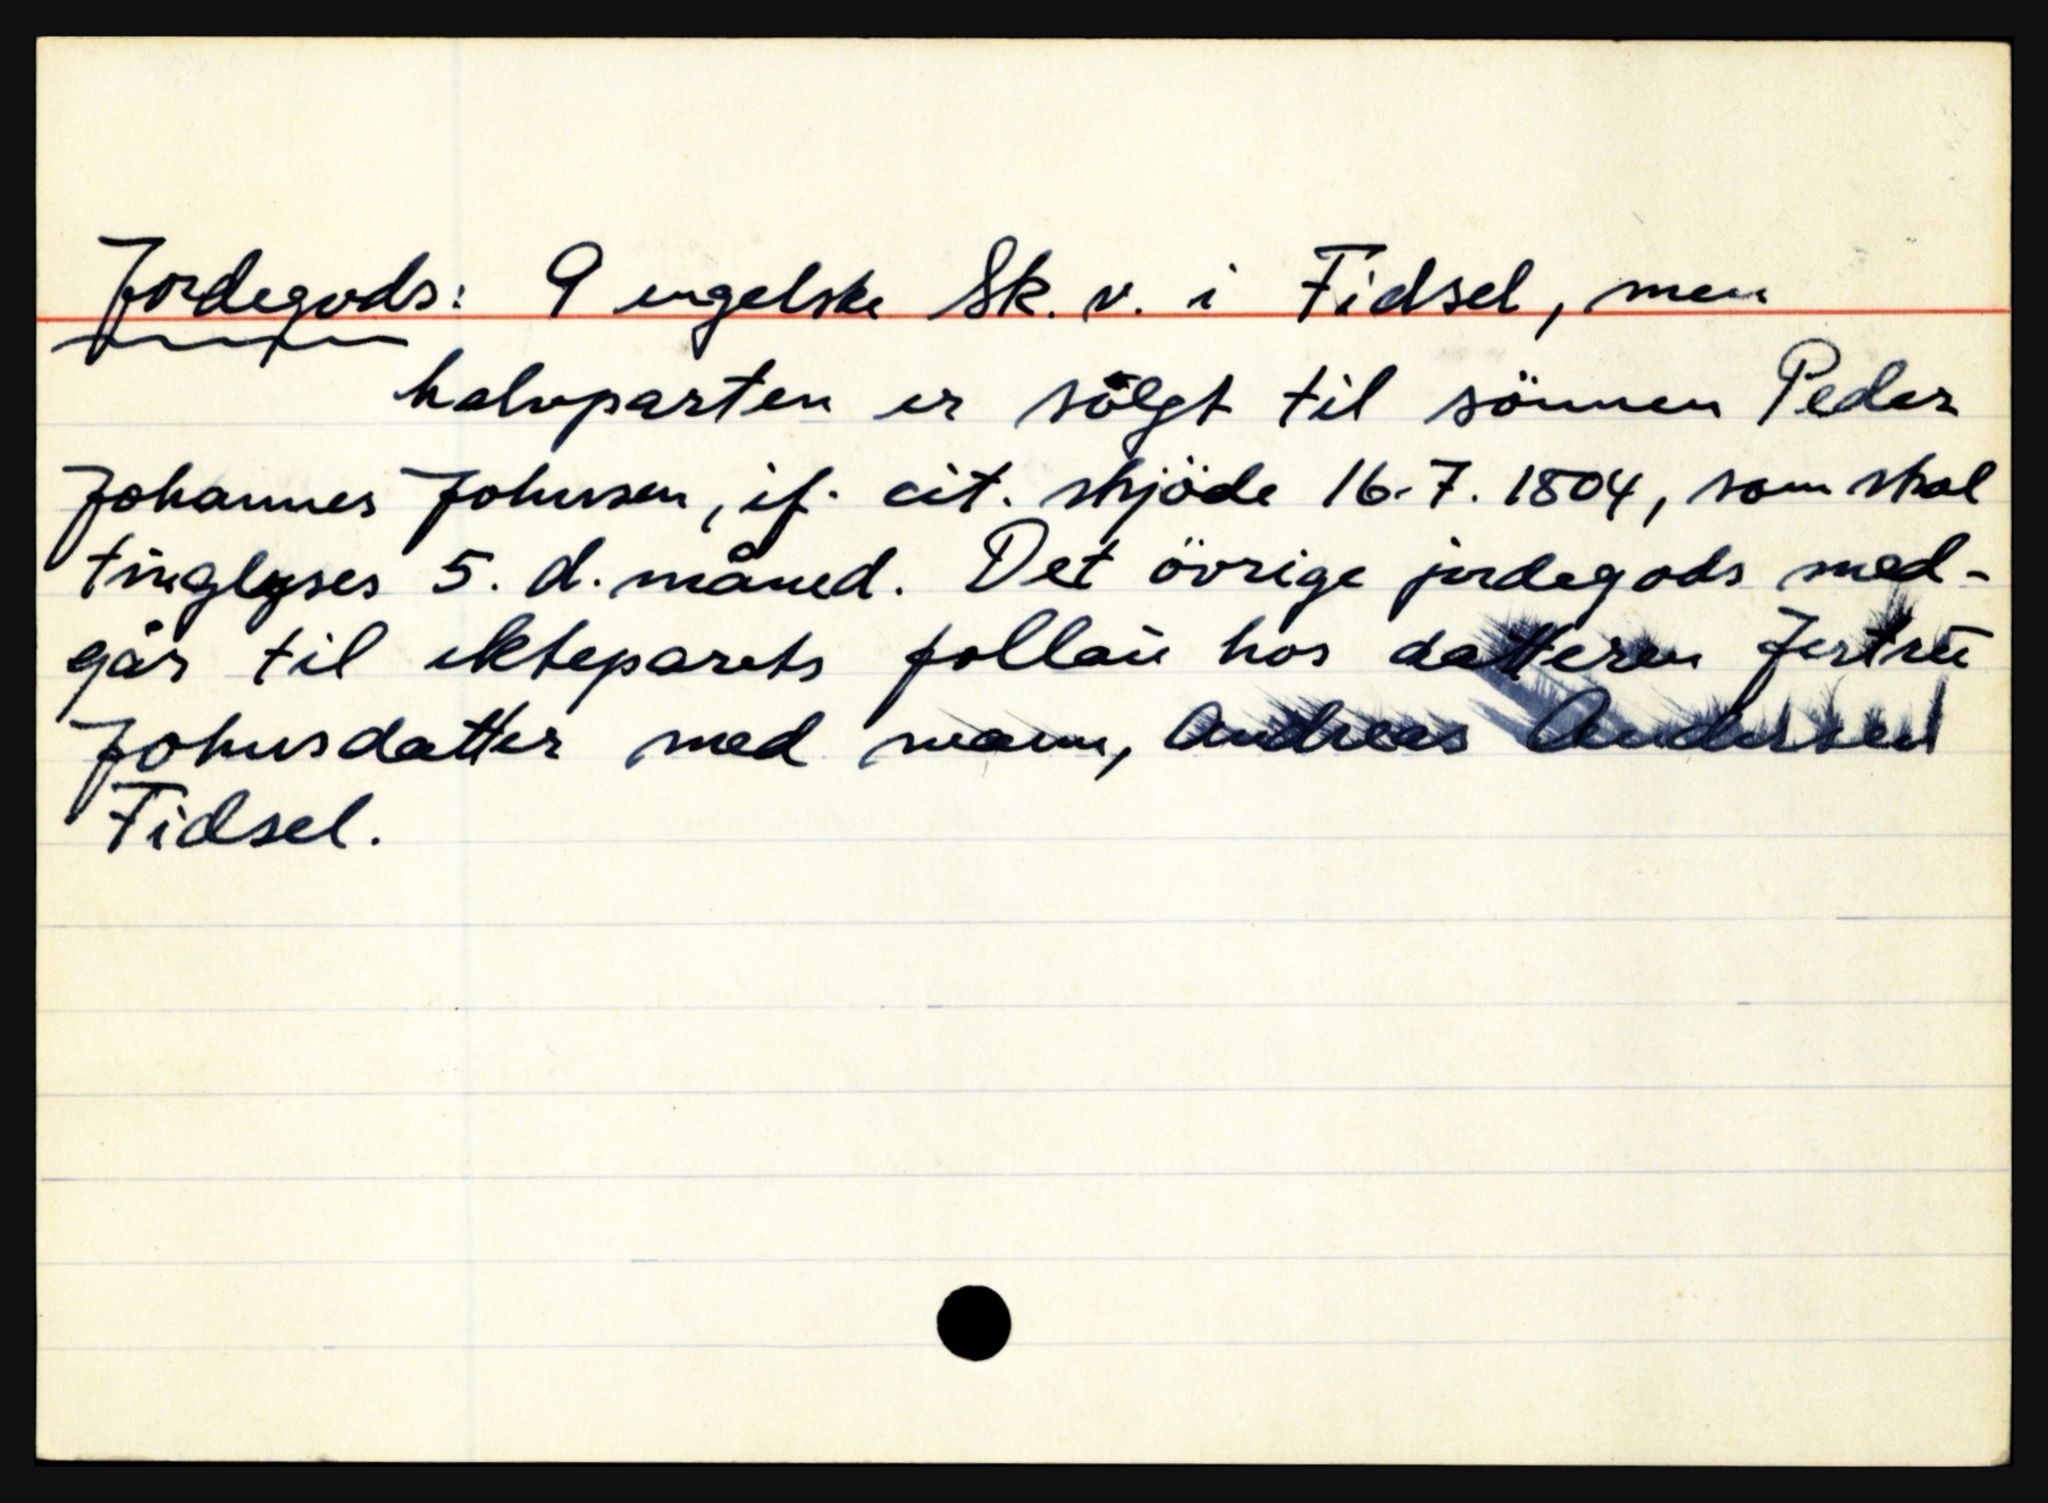 Jordegods: 9 engelske Sk. v. i Fidsel, men
halvparten er sölgt til sönnen Peder
Johannes Johnsen, if. cit. skjöde 16.7.1804, som skal
tinglyses 5. d. måned. Det övrige jordegods med-
går til ekteparets follaŭ hos datteren Jertrŭ
Johnsdatter med mann, Andreas Andersen
Fidsel.